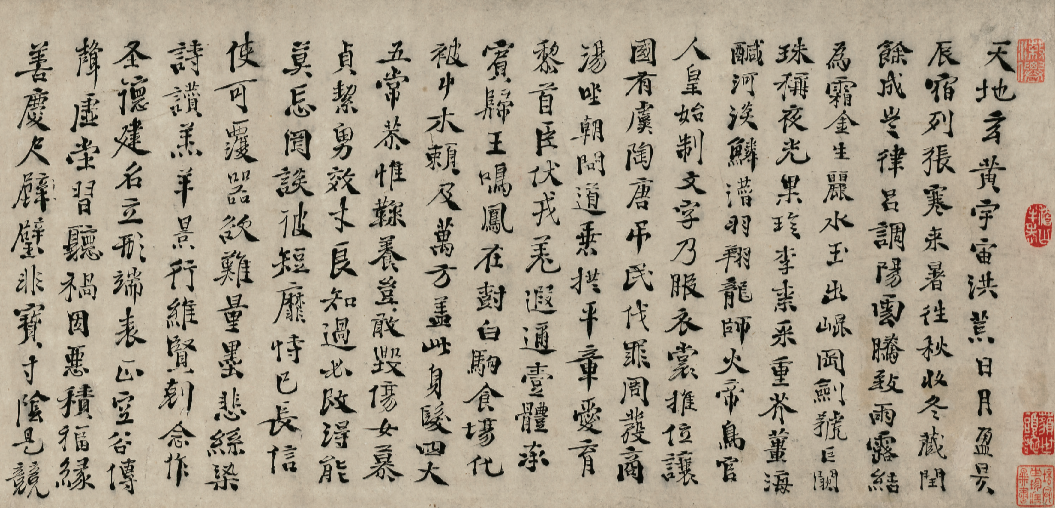 天地玄黃宇宙洪荒日月盈昃
辰宿列張寒來暑往秋收冬藏閏
餘成歲律呂調陽雲騰致雨露結
為霜金生麗水玉出崐岡劍號巨闕
珠稱夜光果珍李柰菜重芥薑海
鹹河淡鱗潛羽翔龍師火帝鳥官
人皇始制文字乃服衣裳推位讓
國有虞陶唐弔民伐罪周發商
湯坐朝問道垂拱平章愛育
黎首臣伏戎羌遐邇壹體率
賓歸王鳴鳳在樹白駒食場化
被草木賴及萬方蓋此身髮四大
五常恭惟鞠養豈敢毀傷女慕
貞絜男效才良知過必改得能
莫忘罔談彼短靡恃己長信
使可覆器欲難量墨悲絲染
詩讚羔羊景行維賢剋念作
圣德建名立形端表正空谷傳
聲虛堂習聽禍因惡積福緣
善慶尺璧非寶寸陰是競